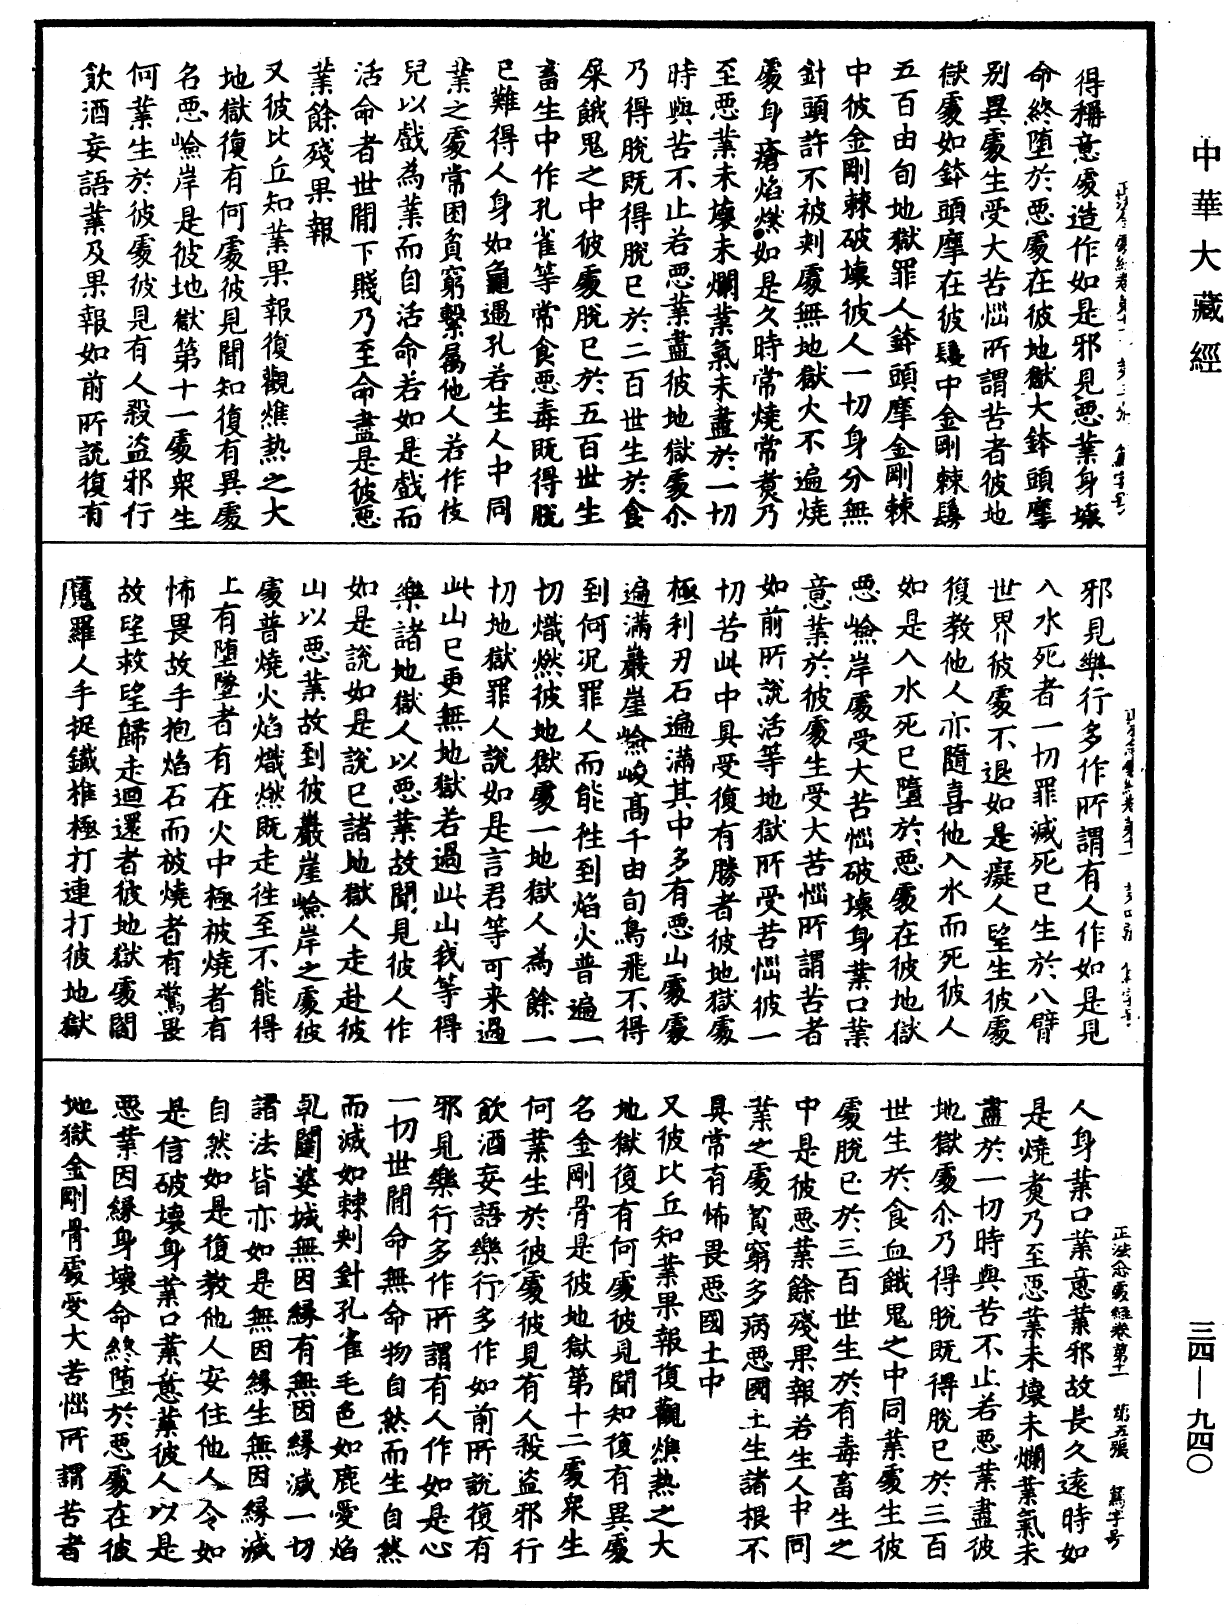 中華大藏經
三四—九四〇
得稱意處造作如是邪見惡業身壞
命終墮於惡處在彼地獄大鉢頭摩
別異處生受大苦惱所謂苦者彼地
獄處如鉢頭摩在彼鬚中金剛棘鬚
五百由旬地獄罪人鉢頭摩金剛棘
中彼金剛棘破壞彼人一切身分無
針頭許不被刺處無地獄火不遍燒
處身瘡焰燃如是久時常燒常煑乃
至惡業未壞未爛業氣未盡於一切
時與苦不止若惡業盡彼地獄處尒
乃得脫既得脫已於二百世生於食
屎餓鬼之中彼處脫已於五百世生
畜生中作孔雀等常食惡毒既得脫
已難得人身如龜遇孔若生人中同
業之處常困貧窮繫屬他人若作伎
兒以戲為業而自活命若如是戲而
活命者世間下賤乃至命盡是彼惡
業餘殘果報
又彼比丘知業果報復觀燋熱之大
地獄復有何處彼見聞知復有異處
名惡嶮岸是彼地獄第十一處眾生
何業生於彼處彼見有人殺盜邪行
飲酒妄語業及果報如前所說復有
邪見樂行多作所謂有人作如是見
入水死者一切罪滅死已生於八臂
世界彼處不退如是癡人望生彼處
復教他人亦隨喜他入水而死彼人
如是入水死已墮於惡處在彼地獄
惡嶮岸處受大苦惱破壞身業口業
意業於彼處生受大苦惱所謂苦者
如前所說活等地獄所受苦惱彼一
切苦此中具受復有勝者彼地獄處
極利刃石遍滿其中多有惡山處處
遍滿巖崖嶮峻高千由旬鳥飛不得
到何況罪人而能徃到焰火普遍一
切熾燃彼地獄處一地獄人為餘一
切地獄罪人說如是言君等可来過
此山已更無地獄若過此山我等得
樂諸地獄人以惡業故聞見彼人作
如是說如是說已諸地獄人走赴彼
山以惡業故到彼巖崖嶮岸之處彼
處普燒火焰熾燃既走徃至不能得
上有墮墜者有在火中極被燒者有
怖畏故手抱焰石而被燒者有驚畏
故望救望歸走迴還者彼地獄處閻
魔羅人手捉鐵椎極打連打彼地獄
正法念處經卷第十一 第五張 篤字号
人身業口業意業邪故長久遠時如
是燒煑乃至惡業未壞未爛業氣未
盡於一切時與苦不止若惡業盡彼
地獄處尒乃得脫既得脫已於三百
世生於食血餓鬼之中同業處生彼
處脫已於三百世生於有毒畜生之
中是彼惡業餘殘果報若生人中同
業之處貧窮多病惡國土生諸根不
具常有怖畏惡國土中
又彼比丘知業果報復觀燋熱之大
地獄復有何處彼見聞知復有異處
名金剛骨是彼地獄第十二處眾生
何業生於彼處彼見有人殺盜邪行
飲酒妄語樂行多作如前所說復有
邪見樂行多作所謂有人作如是心
一切世間命無命物自然而生自然
而滅如棘刺針孔雀毛色如鹿愛焰
乹闥婆城無因緣有無因緣滅一切
諸法皆亦如是無因緣生無因緣滅
自然如是復教他人安住他人令如
是信破壞身業口業意業彼人以是
惡業因緣身壞命終墮於惡處在彼
地獄金剛骨處受大苦惱所謂苦者